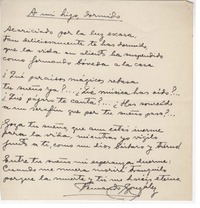 A mi hijo dormido
Acariciado por la luz escasa
tan deliciosamente te has dormido,
que la vida su aliento ha suspendido
como formando bóveda a la casa
¿Qué paraísos mágicos rebasa
tu sueño ya?... ¿Qué música has oído?...
¿Qué pájaro te canta?... ¿Has conocido
a un serafín que por tu sueño pasa?...
Goza tu sueño que aun estás
para la vida, mientras yo vigilo
junto a ti, como un dios
Entre tu sueño mi esperanza duerme:
Cuando me muera moriré tranquilo
porque la muerte y tú me harás eterno
Fernando González